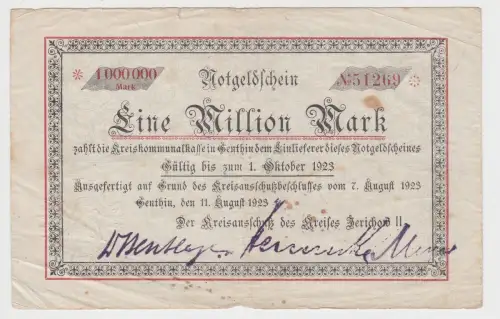 1 000 000
Mark
Notgeldschein
No 51269
Eine Million Mark
zahlt die Kreiskommunalkasse in Genthin dem Einlieferer dieses Notgeldscheines
Gültig bis zum 1. Oktober 1923
Ausgefertigt auf Grund des Kreisausschußbeschlusses vom 7. August 1923
Genthin, den 11. August 1923
Der Kreisausschuß des Kreises Jerichow II.